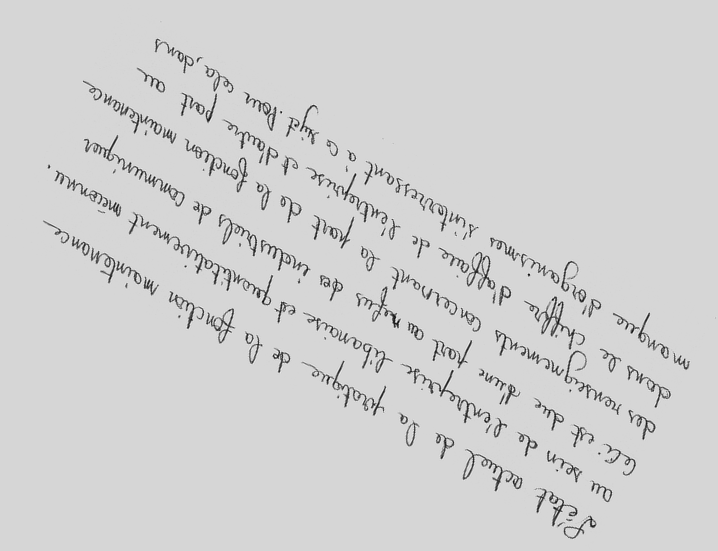 L'état actuel de la pratique de la fonction maintenance
au sein de l'entreprise libanaise est quantitativement méconnu.
Celi est due d'une part au refus des industriels de communiquer
des renseignements concernant la part de la fonction maintenance
dans le chiffre d'affaire de l'entreprise et d'autre part au
manque d'organismes s'interressant à ce sujet. Pour cela, dans